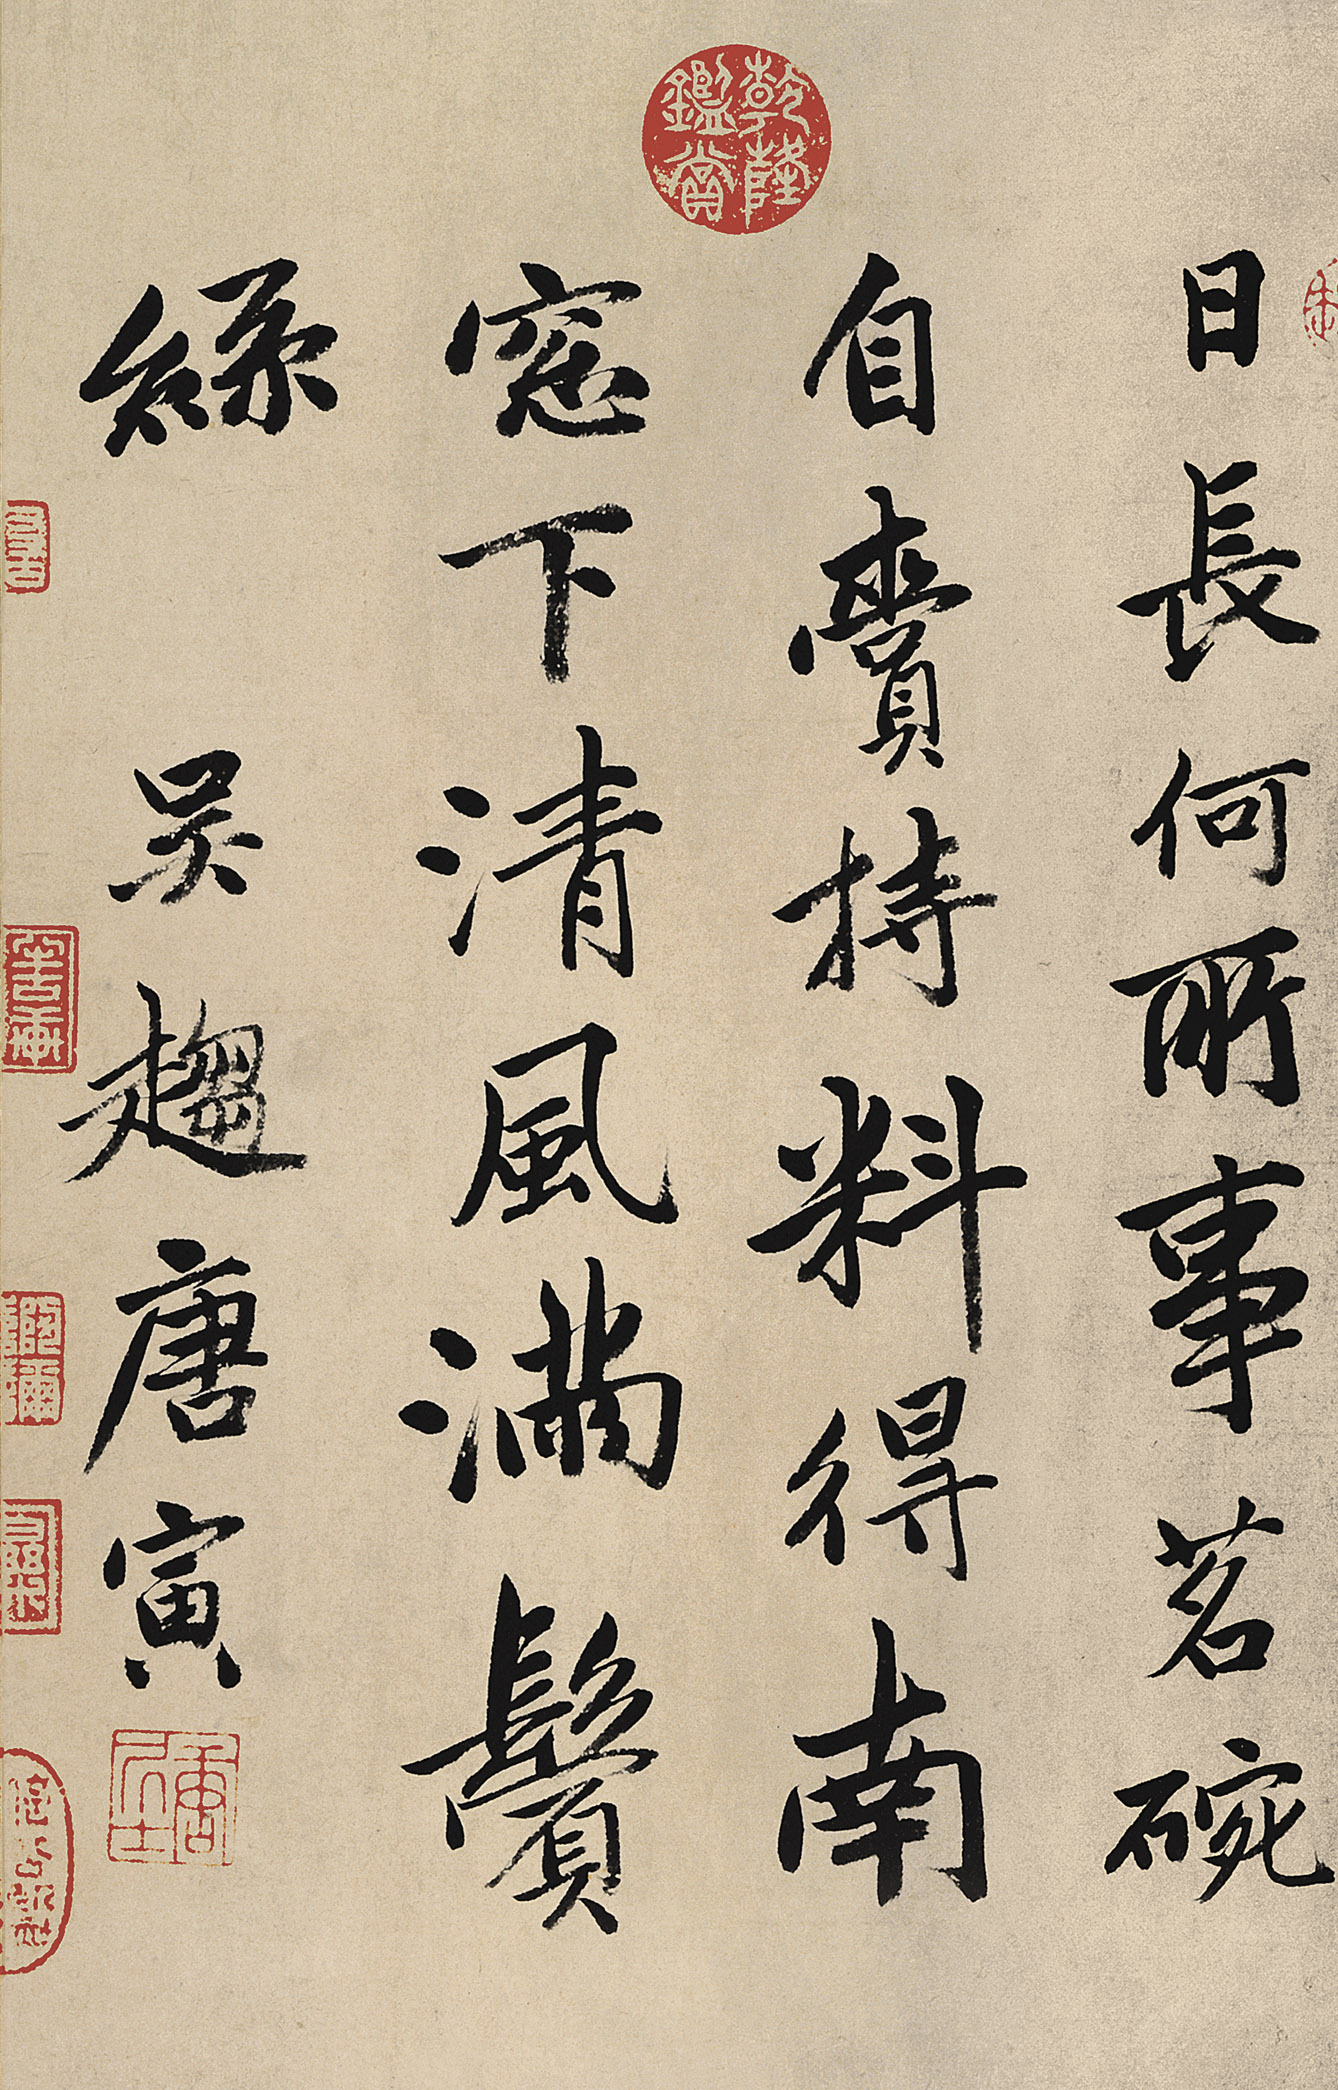 日長何所事茗碗
自賷持料得南
窓下清風滿鬢
絲　吳趨唐寅
乾隆鑑賞